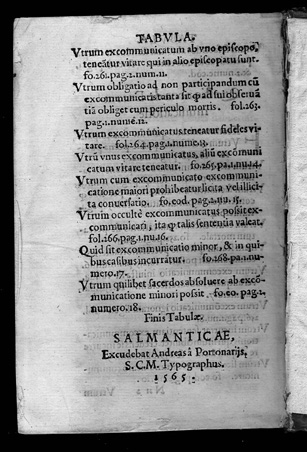 TABVLA.
Vtrum excommunicatum ab vno episcopo,
teneãtur vitare qui in alio episcopatu sunt.
fo.261.pag.2.num.11.
Vtrum obligatio ad non participandum cũ
excommunicatis tanta sit ꝙ ad sui obseruã
tiã obliget cum periculo mortis. fol.263.
pag.1.nume.12.
Vtrum excommunicatus teneatur fideles vi-
tare. fol.264.pag.1.nume.13.
Vtrũ vnus excommunicatus, aliũ excõmuni
catum vitare teneatur. fo.265.pa.1.nu.14.
Vtrum cum excommunicato excommuni-
catione maiori prohibeatur licita vel illici-
ta conuersatio. fo.eod.pag.2.nu.15.
Vtrum occultè excommunicatus possit excom-
municari, ita ꝙ talis sententia valeat.
fol.266.pag.1.nu.16.
Quid sit excommunicatio minor, & in qui-
bus casibus incurratur. fo.268.pa.1.nu-
mero.17.
Vtrum quilibet sacerdos absoluere ab excõ-
municatione minori possit. fo.eo.pag.2.
numero.18.
Finis Tabulæ.
SALMANTICAE,
Excudebat Andreas à Portonarijs,
S.C.M.Typographus.
1565.